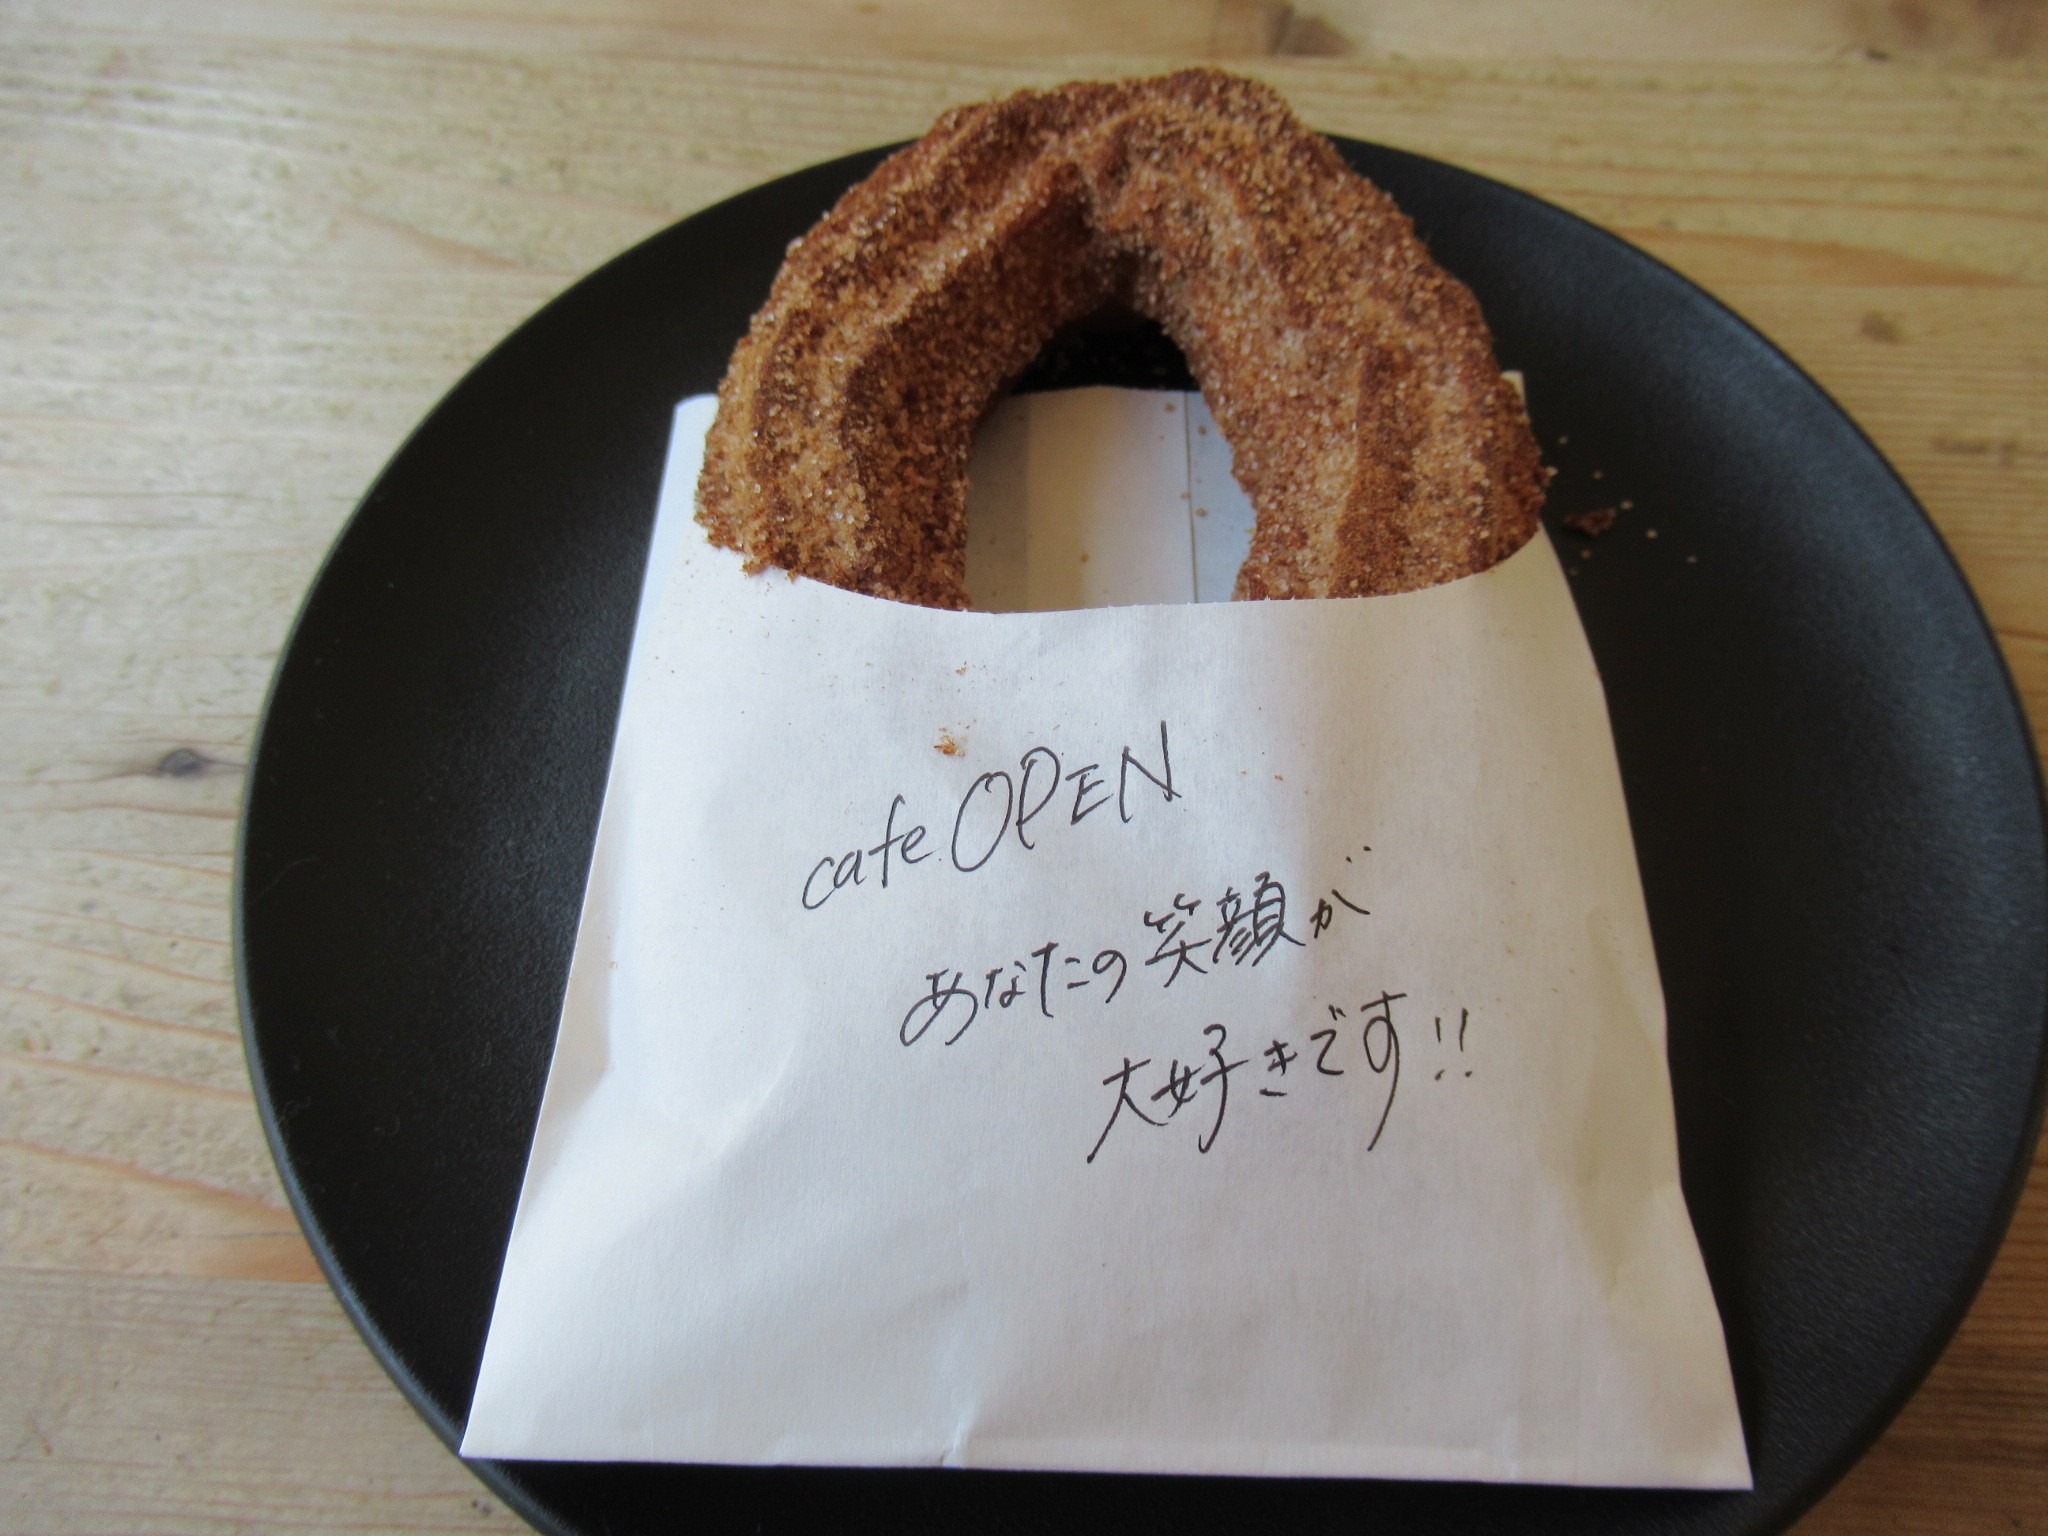 cafe OPEN
あなたの笑顔が
大好きです!!